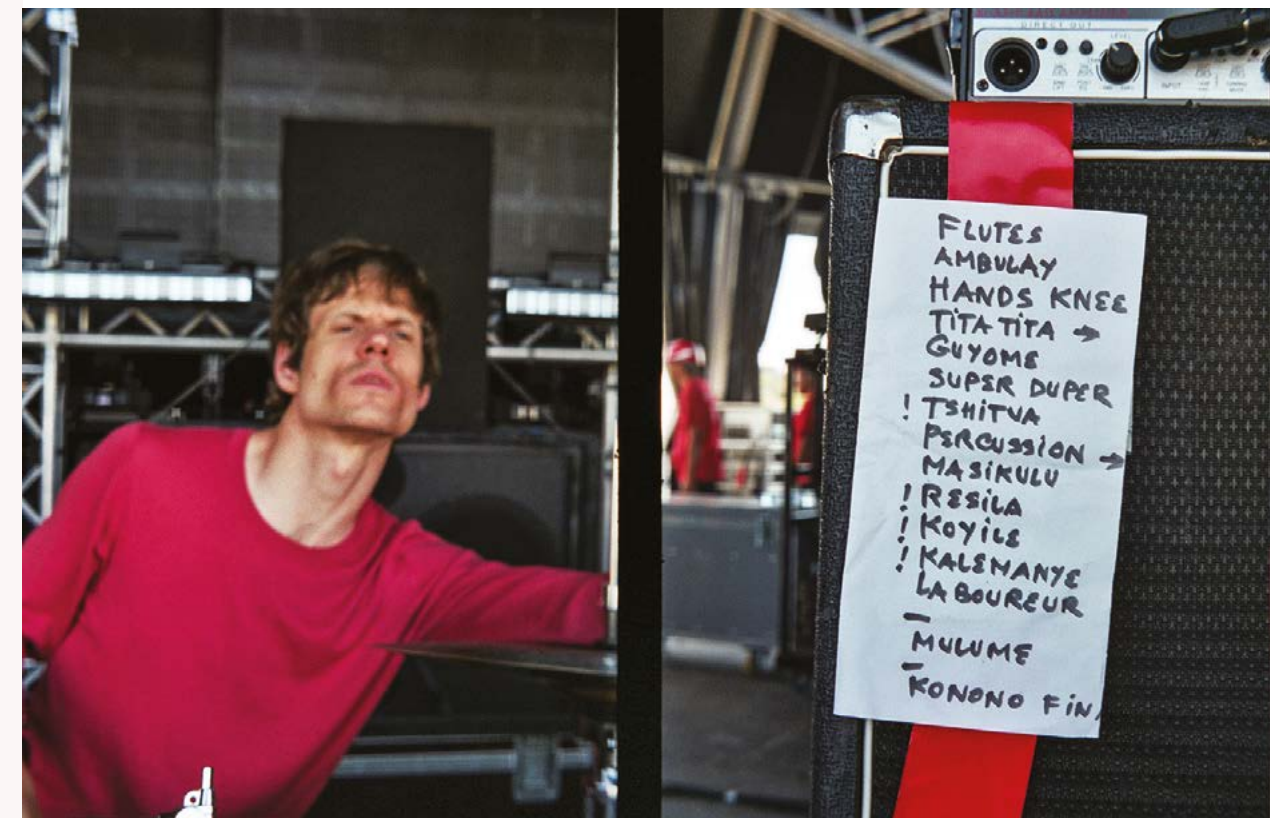 DIRECT OUT
LEVEL
INPUT
FLUTES
AMBULAY
HANDS KNEE
TITA TITA →
GUYOME
SUPER DUPER
! TSHITUA
PERCUSSION →
MASIKULU
! RESILA
! KOYILE
! KALEMANYE
LABOUREUR
–
MULUME
–
KONONO FIN